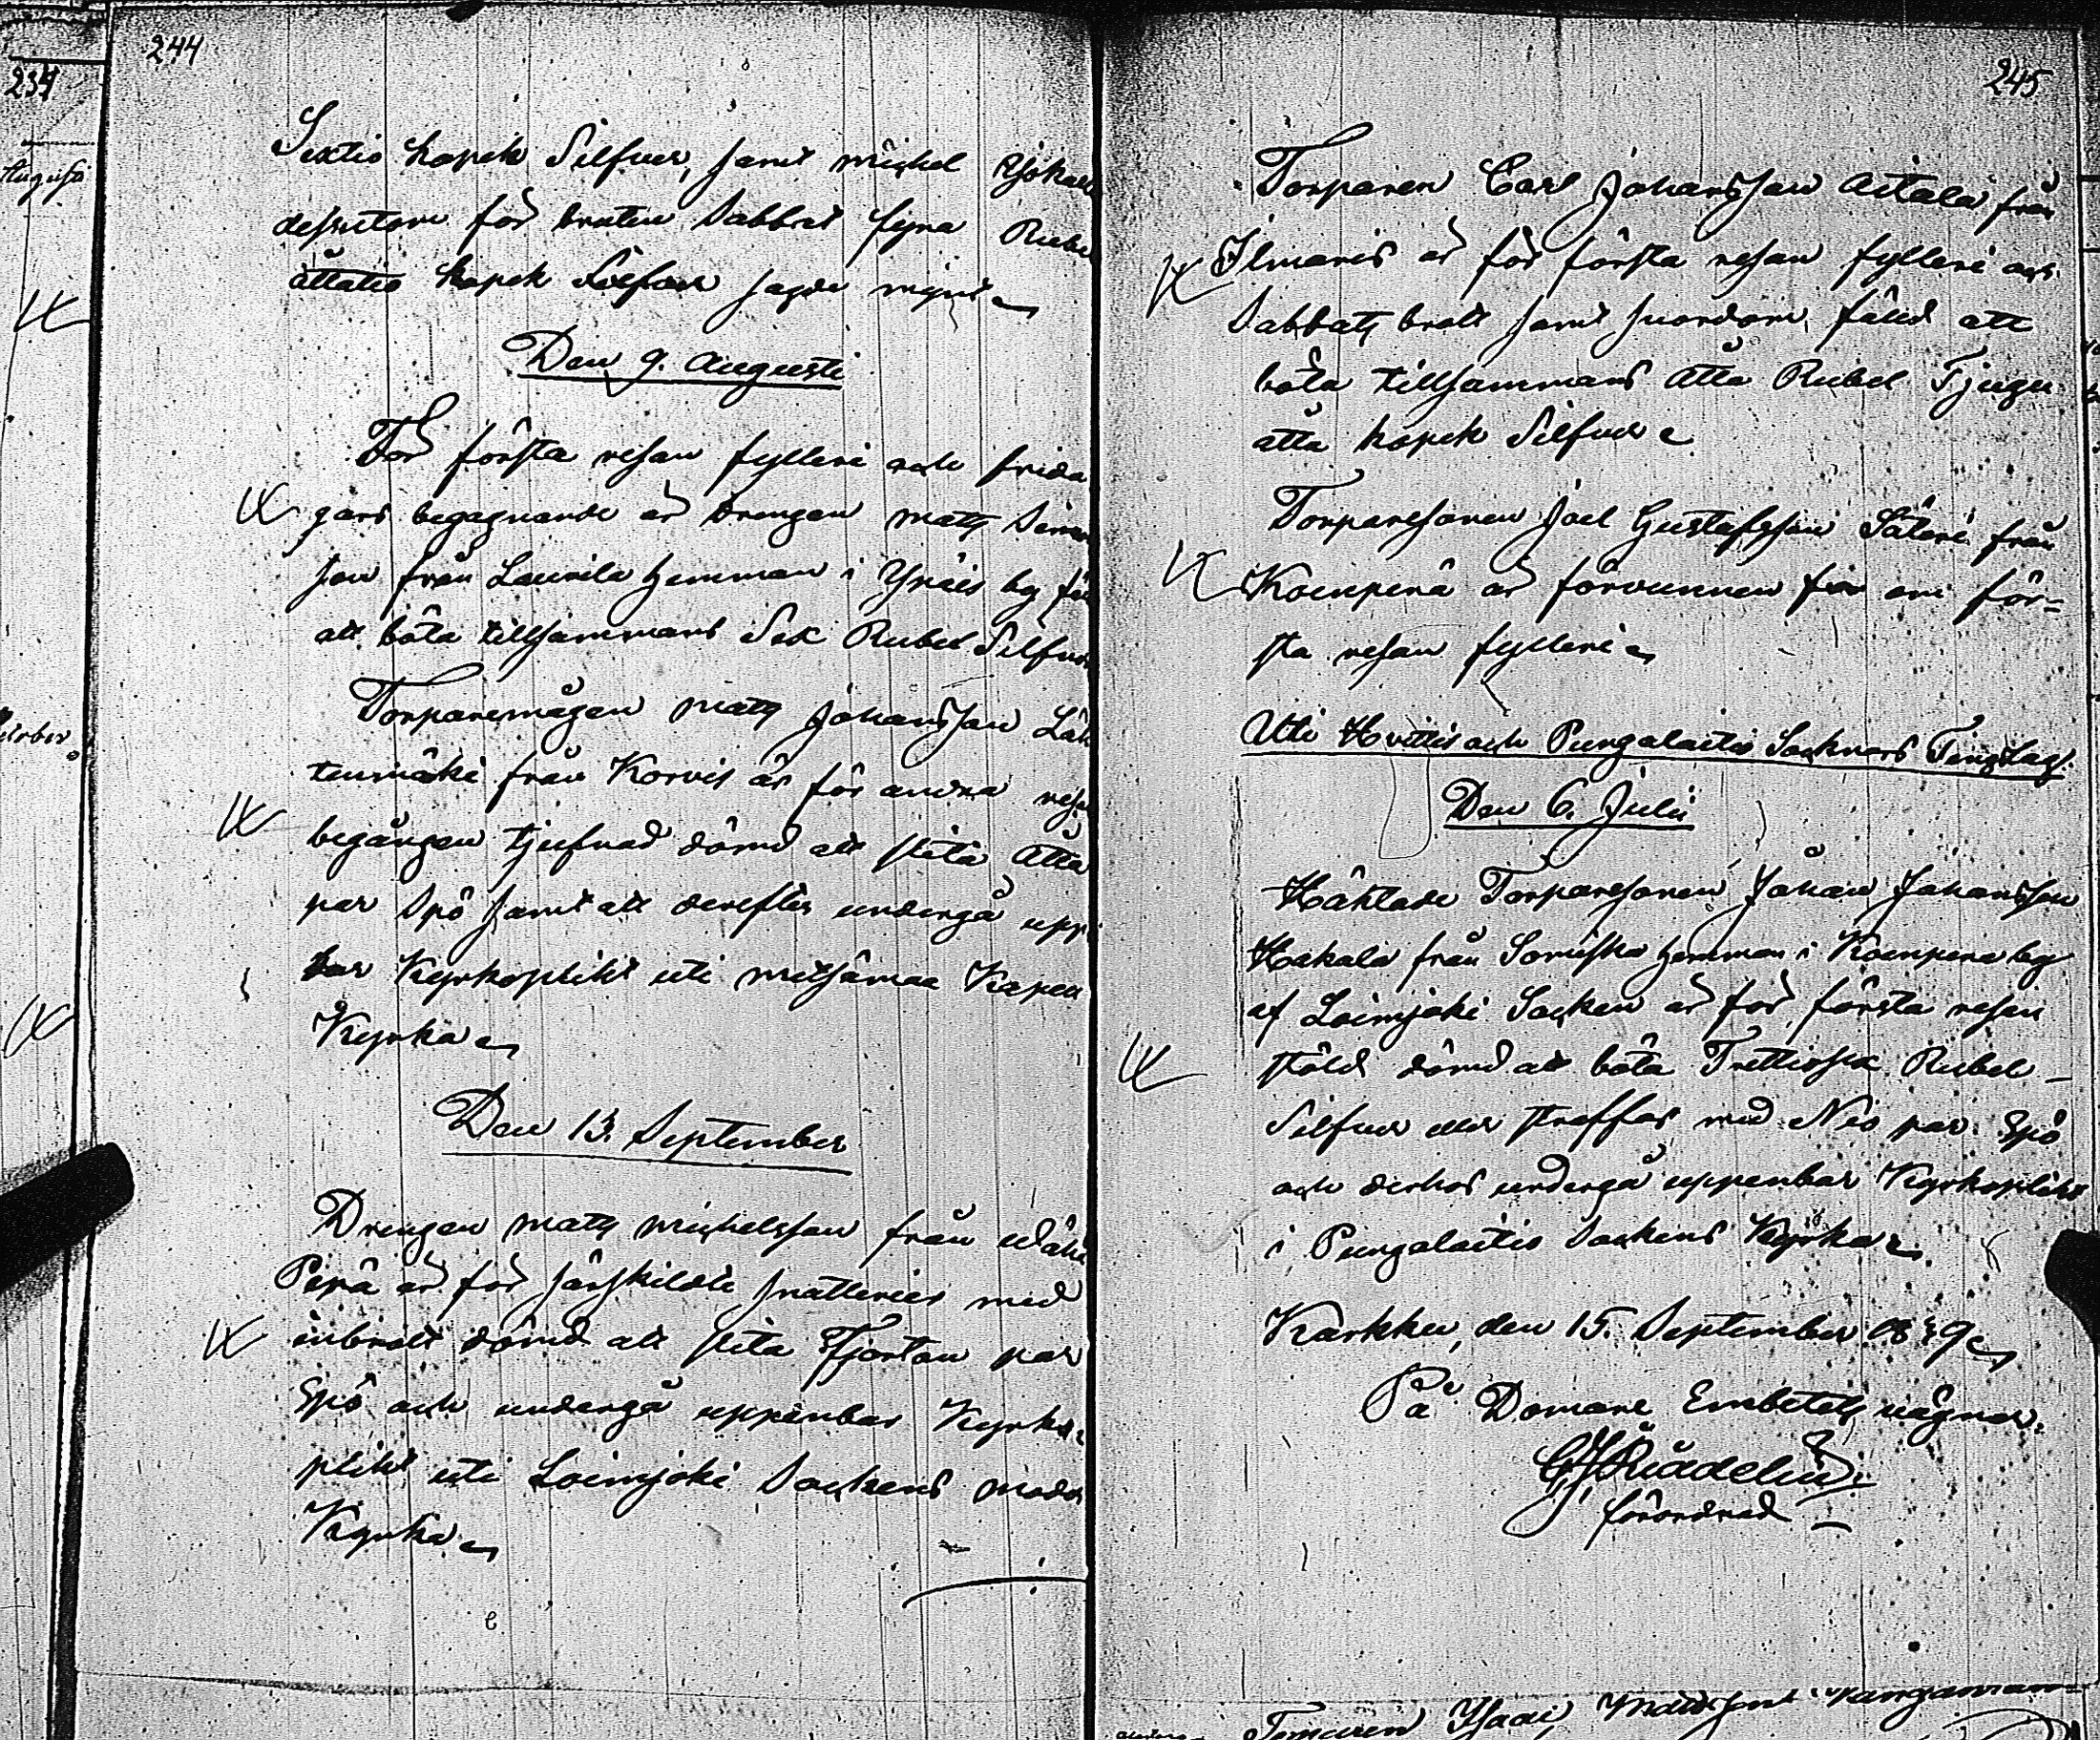 244
Sextio kopek Silfver, samt Michel
dessutom för bruten Sabbat fyra Rubel
åttatio kopek Silfver sagde mynt
Den 9. Augusti
För första resan fylleri och frida
gars begagnande är Drengen Matts
son från Laurila hemman i by
att böta tillsammans Sex Rubel Silfver
Torparemågen Matts Johansson
tenmäki från Korvis är för andra resan
begången tjufnad dömd att slita Åtta
par Spö samt att derefter undergå uppen
bar Kyrkoplikt uti Metsämaa Kapell
Kyrka
Den 13. September
Drengen Matts Michelsson från
Perä är för särskildte snatterier med
inbrott dömd att slita Fjorton par
Spö och undergå uppenbar Kyrko
plikt uti Loimjoki Sockens moder
Kyrka
245
Torparen Carl Johansson Aitala från
Ilmaris är för första resan fylleri och
Sabbats brott samt svordom fäld att
böta tillsammans Åtta Rubel Tjugu
åtta kopek Silfver
Torparesonen Joel Gustafsson Säteri från
Koenperä är förvunnen om för-
sta resan fylleri
Uti Hvittis och Pungalaitio Socknars Tingslag.
Den 6. Julii
Häktade Torparesonen Johan Johansson
Hakala från hemman i Koenperä by
af Loimjoki Socken är för första resan
stöld dömd att böta Trettiosex Rubel
Silfver eller straffas med Nio par Spö
och derhos undergå uppenbar Kyrkoplikt
i Pungalaitio Sockens Kyrka
Karkku, den 15. September
På Domare Embetets vägnar.
förordnad